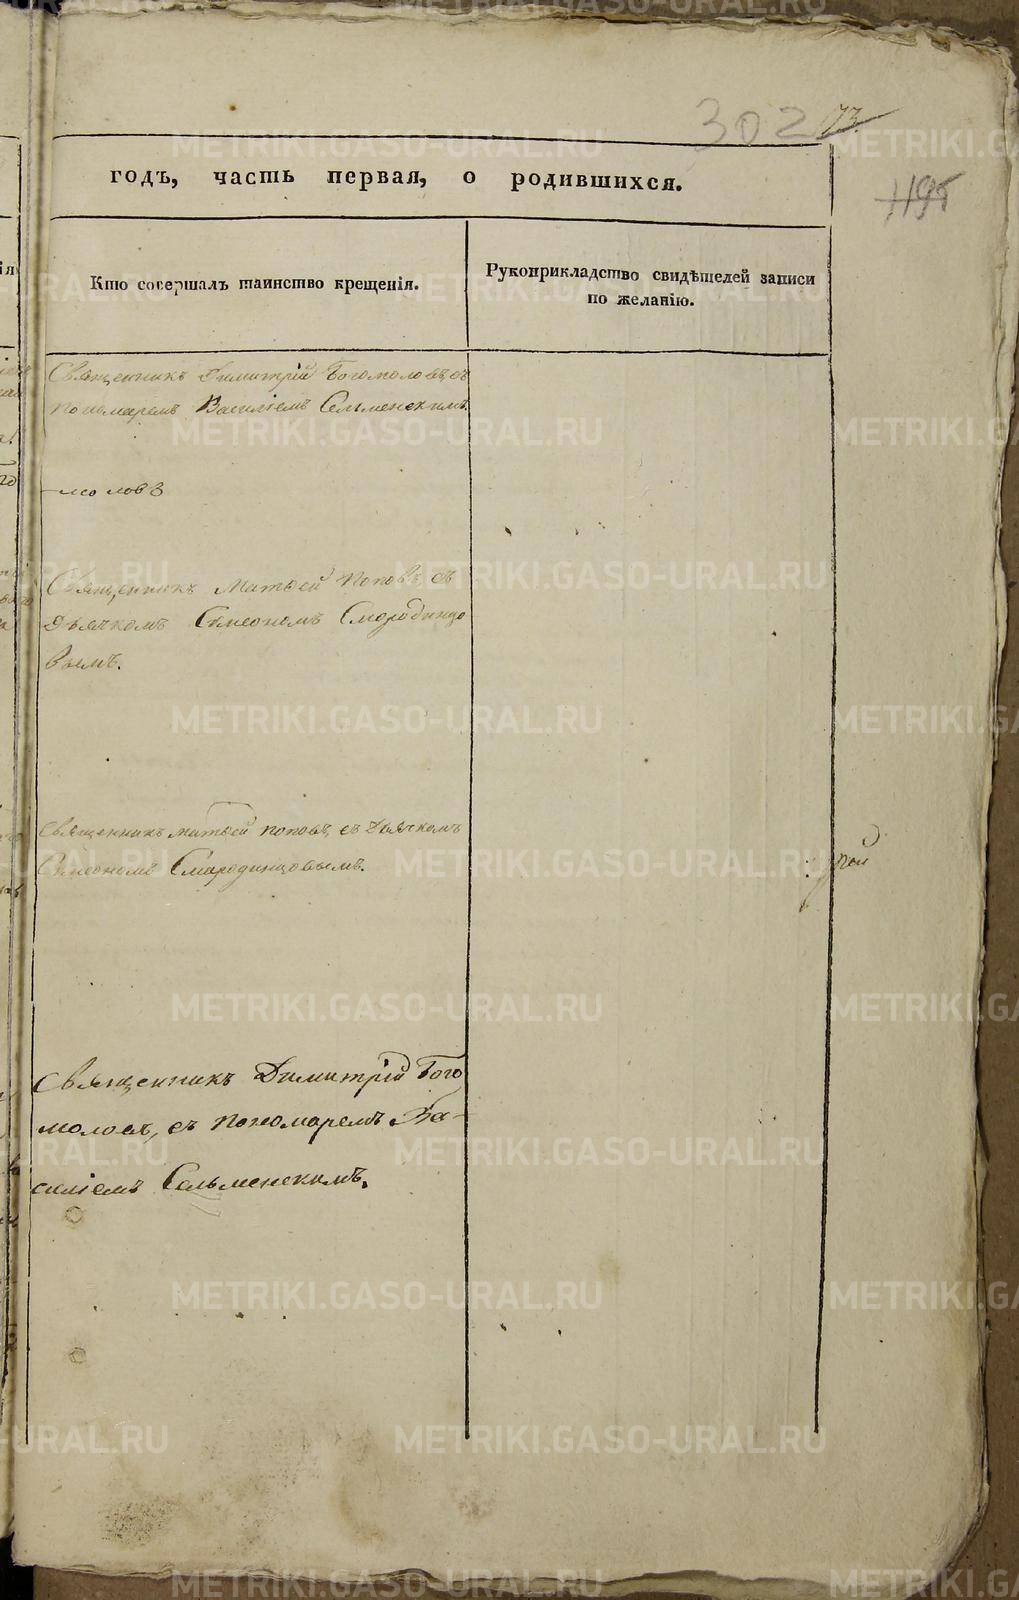 302 173
119
годъ, часть первая, о родившихся.
Кто совершалъ таинство крещенія.
Рукоприкладство свидѣтелей записи
по желанію.
Священникъ Димитрій Богомоловъ, съ
пономаремъ Василіемъ Сельменскимъ.
моловъ
Священникъ Матѳей Поповъ, съ
дьячкомъ Сѵмеономъ Смородинцо
вымъ.
Священникъ Матѳей Поповъ, съ дьячкомъ
Сѵмеономъ Смародинцовымъ.
Священникъ Димитрій Бого
моловъ, съ пономаремъ Ва-
силіемъ Сельменскимъ.
METRIKI.GASO-URAL.RU